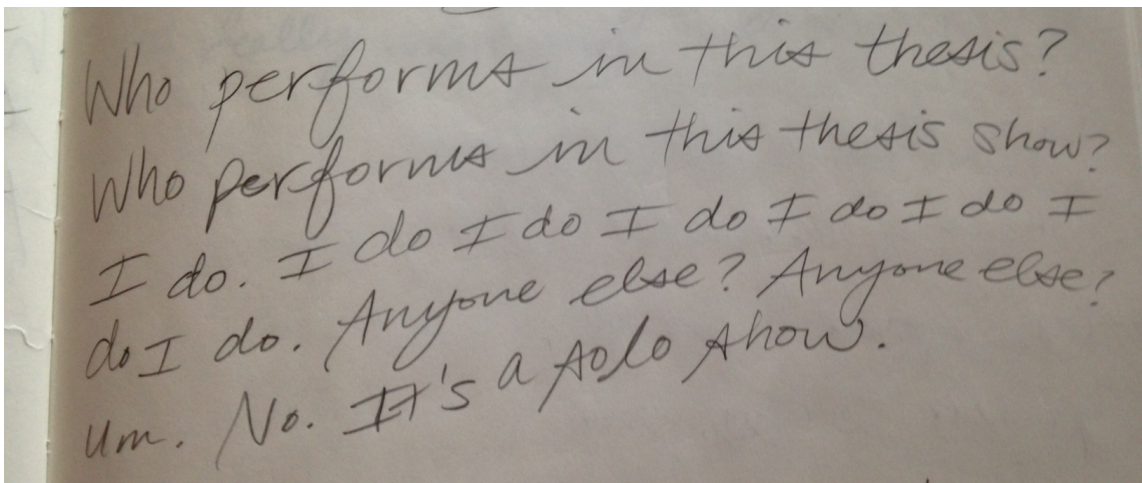 Who performs in this thesis?
Who performs in this thesis show?
I do. I do I do I do I do I do I
do I do. Anyone else? Anyone else?
um. No. It's a solo show.